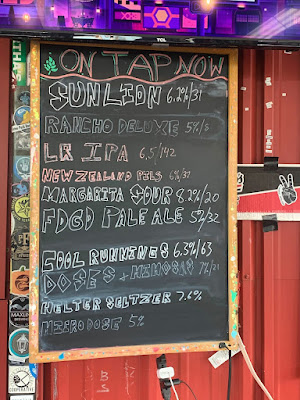 TCL
ON TAP NOW
SUNLION 6.2%/31
RANCHO DELUXE 5%/8
LR IPA 6.5/142
NEW ZEALAND PILS 6%/31
MARGARITA SOUR 8.2%/20
FDGD PALE ALE 5%/32
COOL RUNNINGS 6.3%/63
DOSES + MIMOSAS 7%/21
HELTER SELTZER 7.6%
MICRODOSE 5%